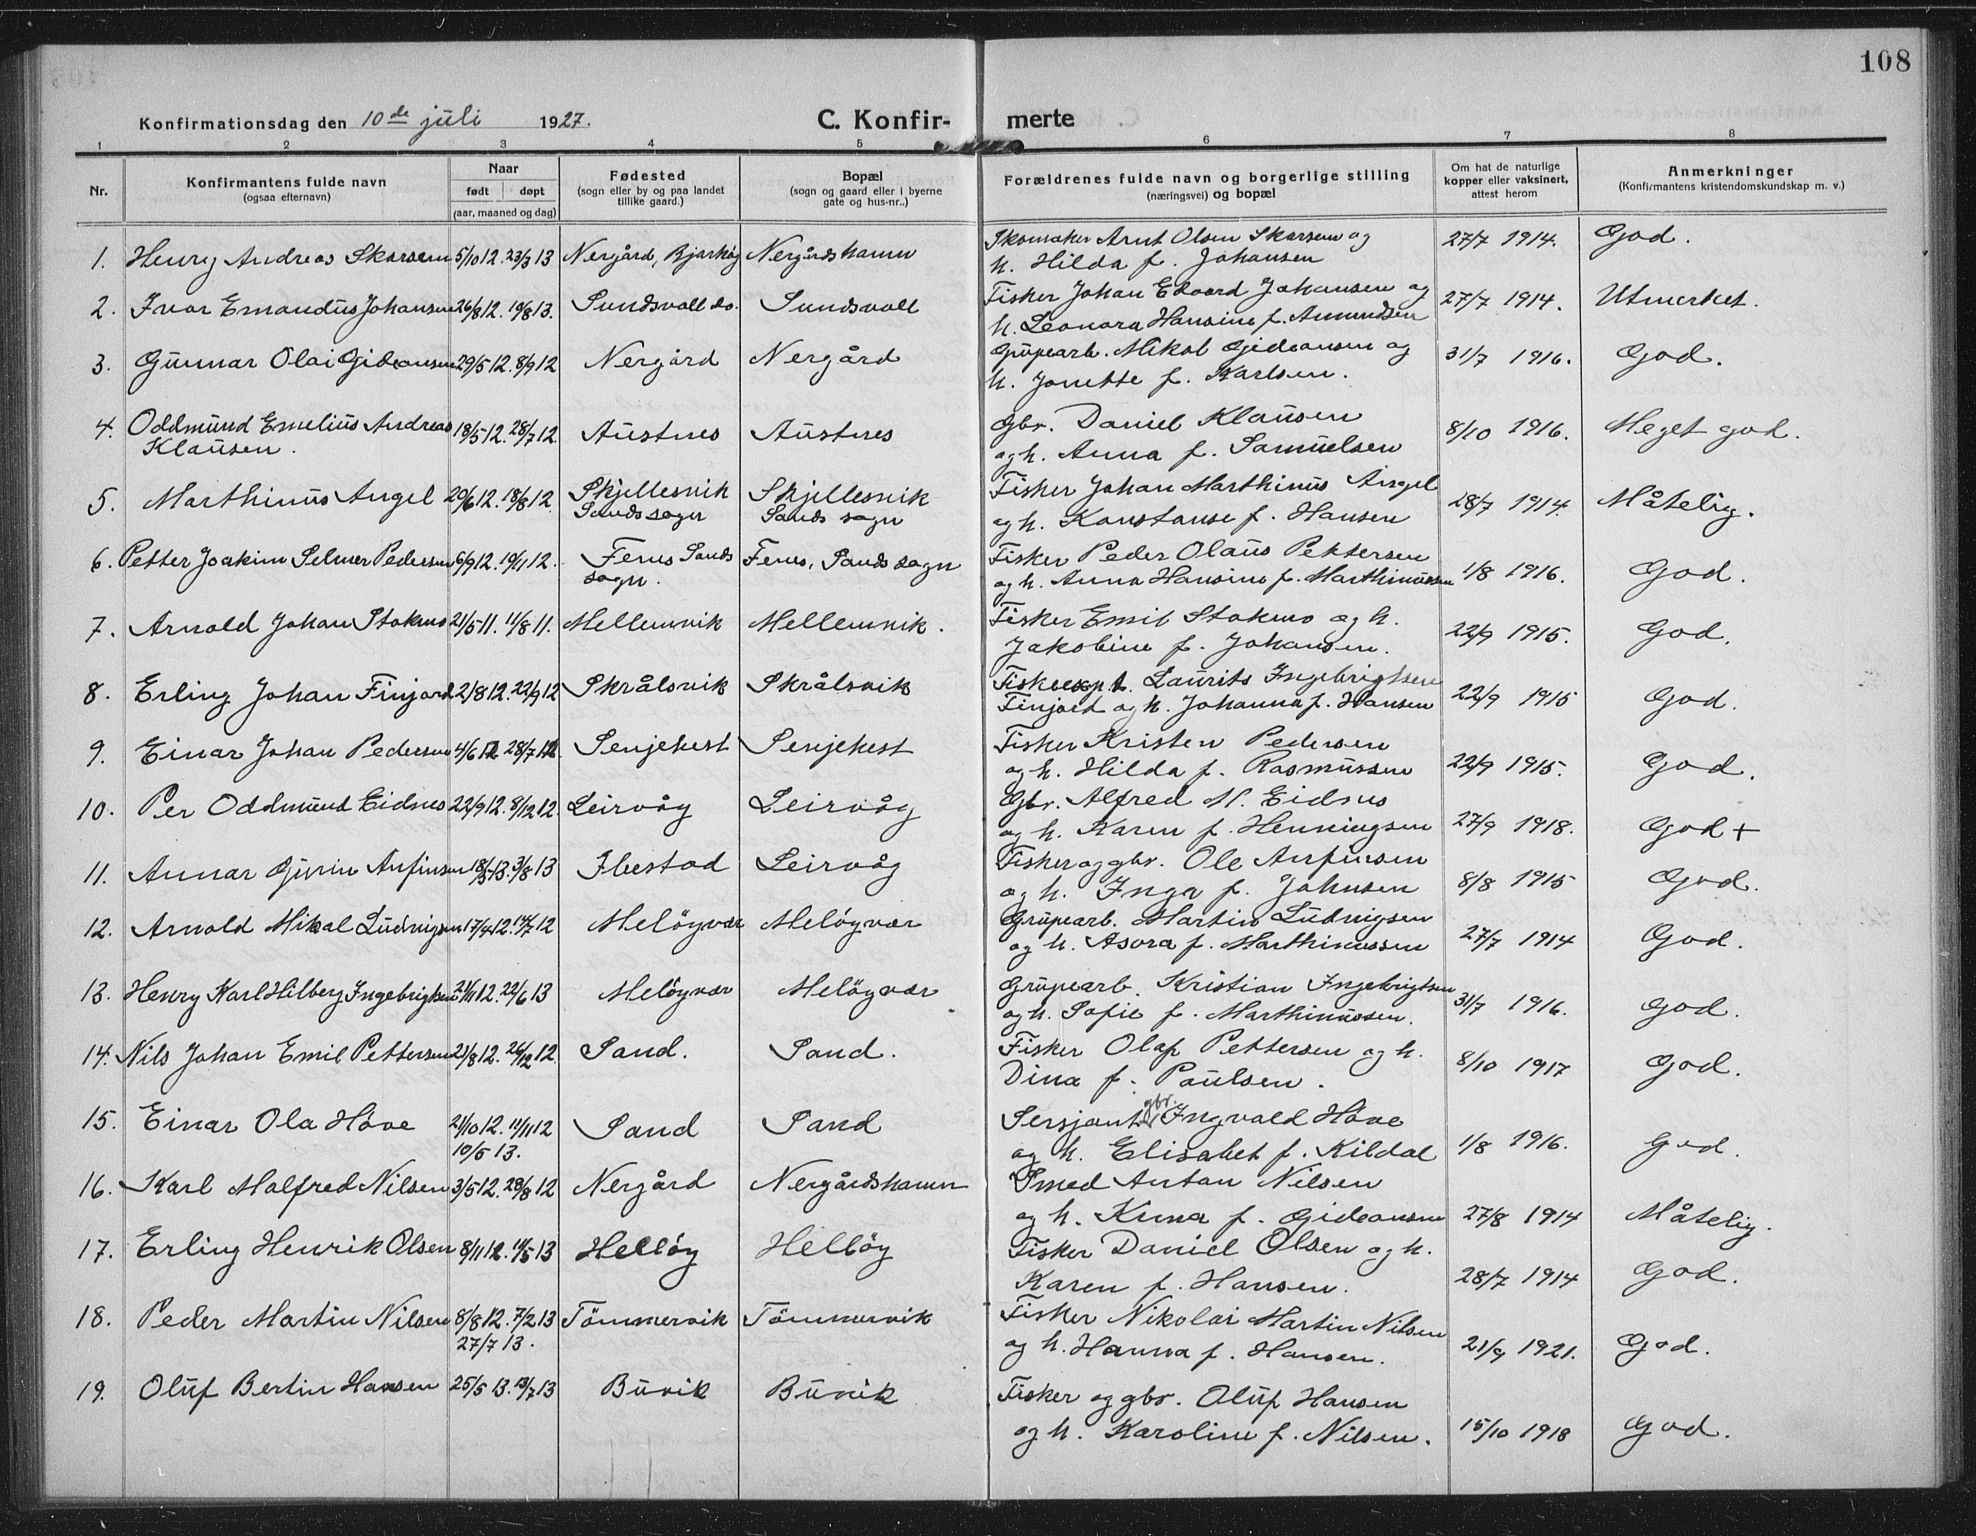 108
Konfirmationsdag den 10de juli 1927.
C. Konfir- merte
1 2 3 4 5 6 7 8
Nr.
Konfirmantens fulde navn
(ogsaa efternavn)
Naar
født døpt
(aar, maaned og dag)
Fødested
(sogn eller by og paa landet
tillike gaard.)
Bopæl
(sogn og gaard eller i byerne
gate og hus-nr..)
Forældrenes fulde navn og borgerlige stilling
(næringsvei) og bopæl
Om hat de naturlige
kopper eller vaksinert,
attest herom
Anmerkninger
(Konfirmantens kristendomskundskap m. v.)
1. Henry Andreas Skarsem 5/10 12. 23/3 13 Nergård, Bjarkøy Nergårdshamn Skomaker Arnt Olsen Skarsem og 27/7 1914. God.
h. Hilda f. Johansen
2. Ivar Emandus Johansen 26/8 12. 10/8 13. Sundsvoll do. Sundsvoll Fisker Johan Edvard Johansen og 27/7 1914. Utmerket.
h. Leonora Hansine f. Amundsen
3. Gunnar Olai Gideonsen 29/5 12. 8/9 12 Nergård Nergård Grupearb. Mikal Gideonsen og 31/7 1916. God.
h. Jonette f. Karlsen.
4. Oddmund Emelius Andreas 18/5 12. 28/7 12 Austnes Austnes Gbr. Daniel Klausen 8/10 1916. Meget god.
Klausen. og h. Anna f. Samuelsen
5. Marthinus Angel 20/6 12. 18/8 12. Skjellesvik Skjellesvik Fisker Johan Marthinus Angel 28/7 1914. Måtelig.
Sands sogn Sands sogn og h. Konstanse f. Hansen
6. Petter Joakim Selmer Pedersen 6/9 12. 10/11 12. Fenes Sands Fenes, Sands sogn Fisker Peder Olaus Pettersen 1/8 1916. God.
sogn. og h. Anna Hansine f. Marthinussen
7. Arnold Johan Stokmo 21/5 11. 11/8 11. Mellemvik Mellemvik. Fisker Emil Stokmo og h. 22/9 1915. God.
Jakobine f. Johansen.
8. Erling Johan Finjord 2/8 12. 22/9 12 Skrålsvik Skrålsvik Fiskeexp. Laurits Ingebrigtsen 22/9 1915 God.
Finjord og h. Johanna f. Hansen
9. Einar Johan Pedersen 4/6 12 28/7 12. Senjehest Senjehest Fisker Kristen Pedersen 22/9 1915. God.
og h. Hilda f. Rasmussen
10. Per Oddmund Eidnes 22/9 12. 8/12 12. Leirvåg Leirvåg Gbr. Alfred M. Eidnes 27/9 1918. God +
og h. Karen f. Henningsen
11. Annar Guvin Anfinsen 18/3 13. 3/8 13 Ibestad Leirvåg Fisker og gbr. Ole Anfinsen 8/8 1915 God.
og h. Inga f. Johnsen
12. Arnold Mikal Ludvigsen 17/4 12. 14/7 12 Meløyvær Meløyvær Grupearb. Martin Ludvigsen 27/7 1914 God.
og h. Asora f. Marthinussen
13. Henry Karl Hilberg Ingebrigtsen 21/11 12. 22/6 13 Meløyvær Meløyvær Grupearb. Kristian Ingebrigtsen 31/7 1916. God.
og h. Sofie f. Marthinussen.
14. Nils Johan Emil Pettersen 21/8 12. 26/12 12. Sand. Sand. Fisker Olaf Pettersen og h. 8/10 1917 God.
Dina f. Paulsen.
15. Einar Ola Høve 21/10 12. 11/11 12 Sand Sand Sersjant gbr. Ingvald Høve 1/8 1916. God.
10/5 13. og h. Elisabet f. Kildal
16. Karl Malfred Nilsen 3/5 12. 28/8 12 Nergård Nergårdshamn Smed Anton Nilsen 27/8 1914 Måtelig.
og h. Kuna f. Gideonsen
17. Erling Henrik Olsen 8/11 12. 11/5 13 Helløy Helløy Fisker Daniel Olsen og h. 28/7 1914 God.
Karen f. Hansen.
18. Peder Martin Nilsen 8/8 12. 7/2 13 Tømmervik Tømmervik Fisker Nikolai Martin Nilsen 21/9 1921. God.
27/7 13. og h. Hanna f. Hansen.
19. Oluf Bertin Hansen 25/5 13. 13/7 13 Buvik Buvik Fisker og gbr. Oluf Hansen 15/10 1918 God.
og h. Karoline f. Nilsen.